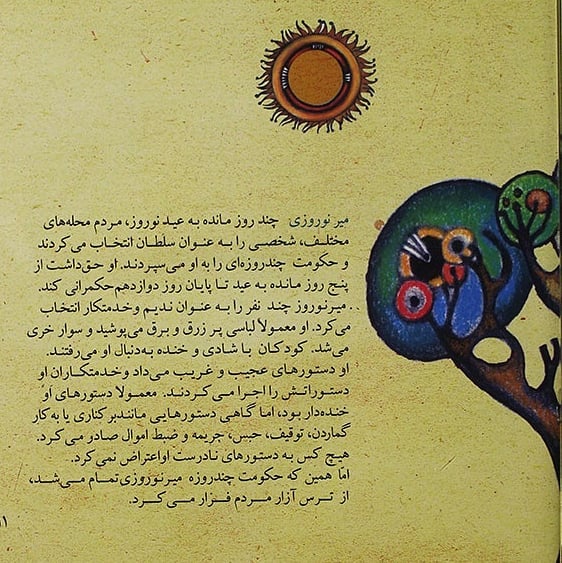 میر نوروزی چند روز مانده به عید نوروز، مردم محله‌های
مختلف، شخصی را به عنوان سلطان انتخاب می‌کردند
و حکومت چندروزه‌ای را به او می‌سپردند. او حق‌داشت از
پنج روز مانده به عید تا پایان روز دوازدهم‌حکمرانی کند.
..میرنوروز چند نفر را به عنوان ندیم وخدمتکار انتخاب
می‌کرد. او معمولاً لباسی پر زرق و برق می‌پوشید و سوار خری
می‌شد. کودکان با شادی و خنده به‌دنبال او می‌رفتند.
او دستورهای عجیب و غریب می‌داد وخدمتکاران او
دستوراتش را اجرا می‌کردند. معمولا دستورهای او
خنده‌دار بود، اما گاهی دستورهایی مانندبرکناری یا به‌کار
گماردن، توقیف، حبس، جریمه و ضبط اموال صادو می‌کرد.
هیچ کس به دستورهای نادرست اواعتراض نمی‌کرد.
امّا همین که حکومت چندروزه میرنوروزی‌تمام می‌شد،
از ترس آزار مردم فرار می‌کرد.